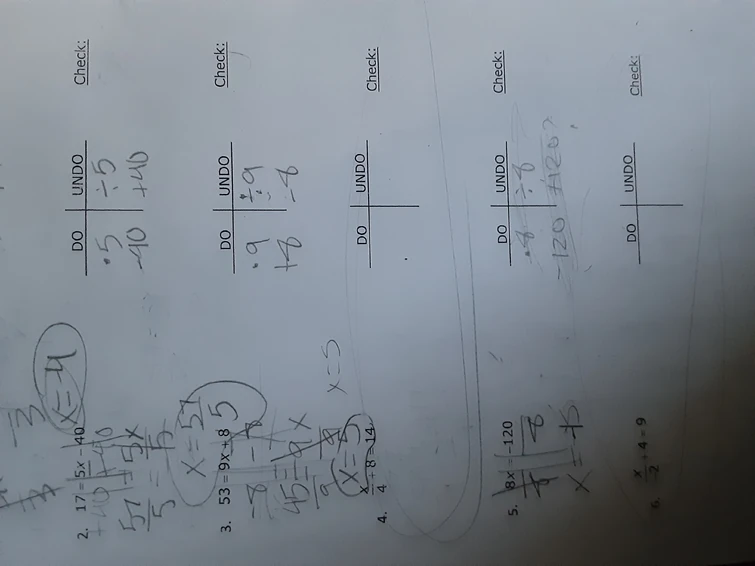 -3
x=-4
2. 17 = 5x - 40
+40 +40
57 = 5x
5 = 5
x = 57
5
DO UNDO
·5 ÷5
-40 +40
Check:
3. 53 = 9x + 8
-8 -8
45 = 9x
9 9
x=5
x=5
DO UNDO
·9 ÷9
+8 -8
Check:
4. x/4 + 8 = 14
DO UNDO
Check:
5. 8x = -120
8 8
x = -15
DO UNDO
·8 ÷8
-120 +120
Check:
6. x/-2 + 4 = 9
DO UNDO
Check: